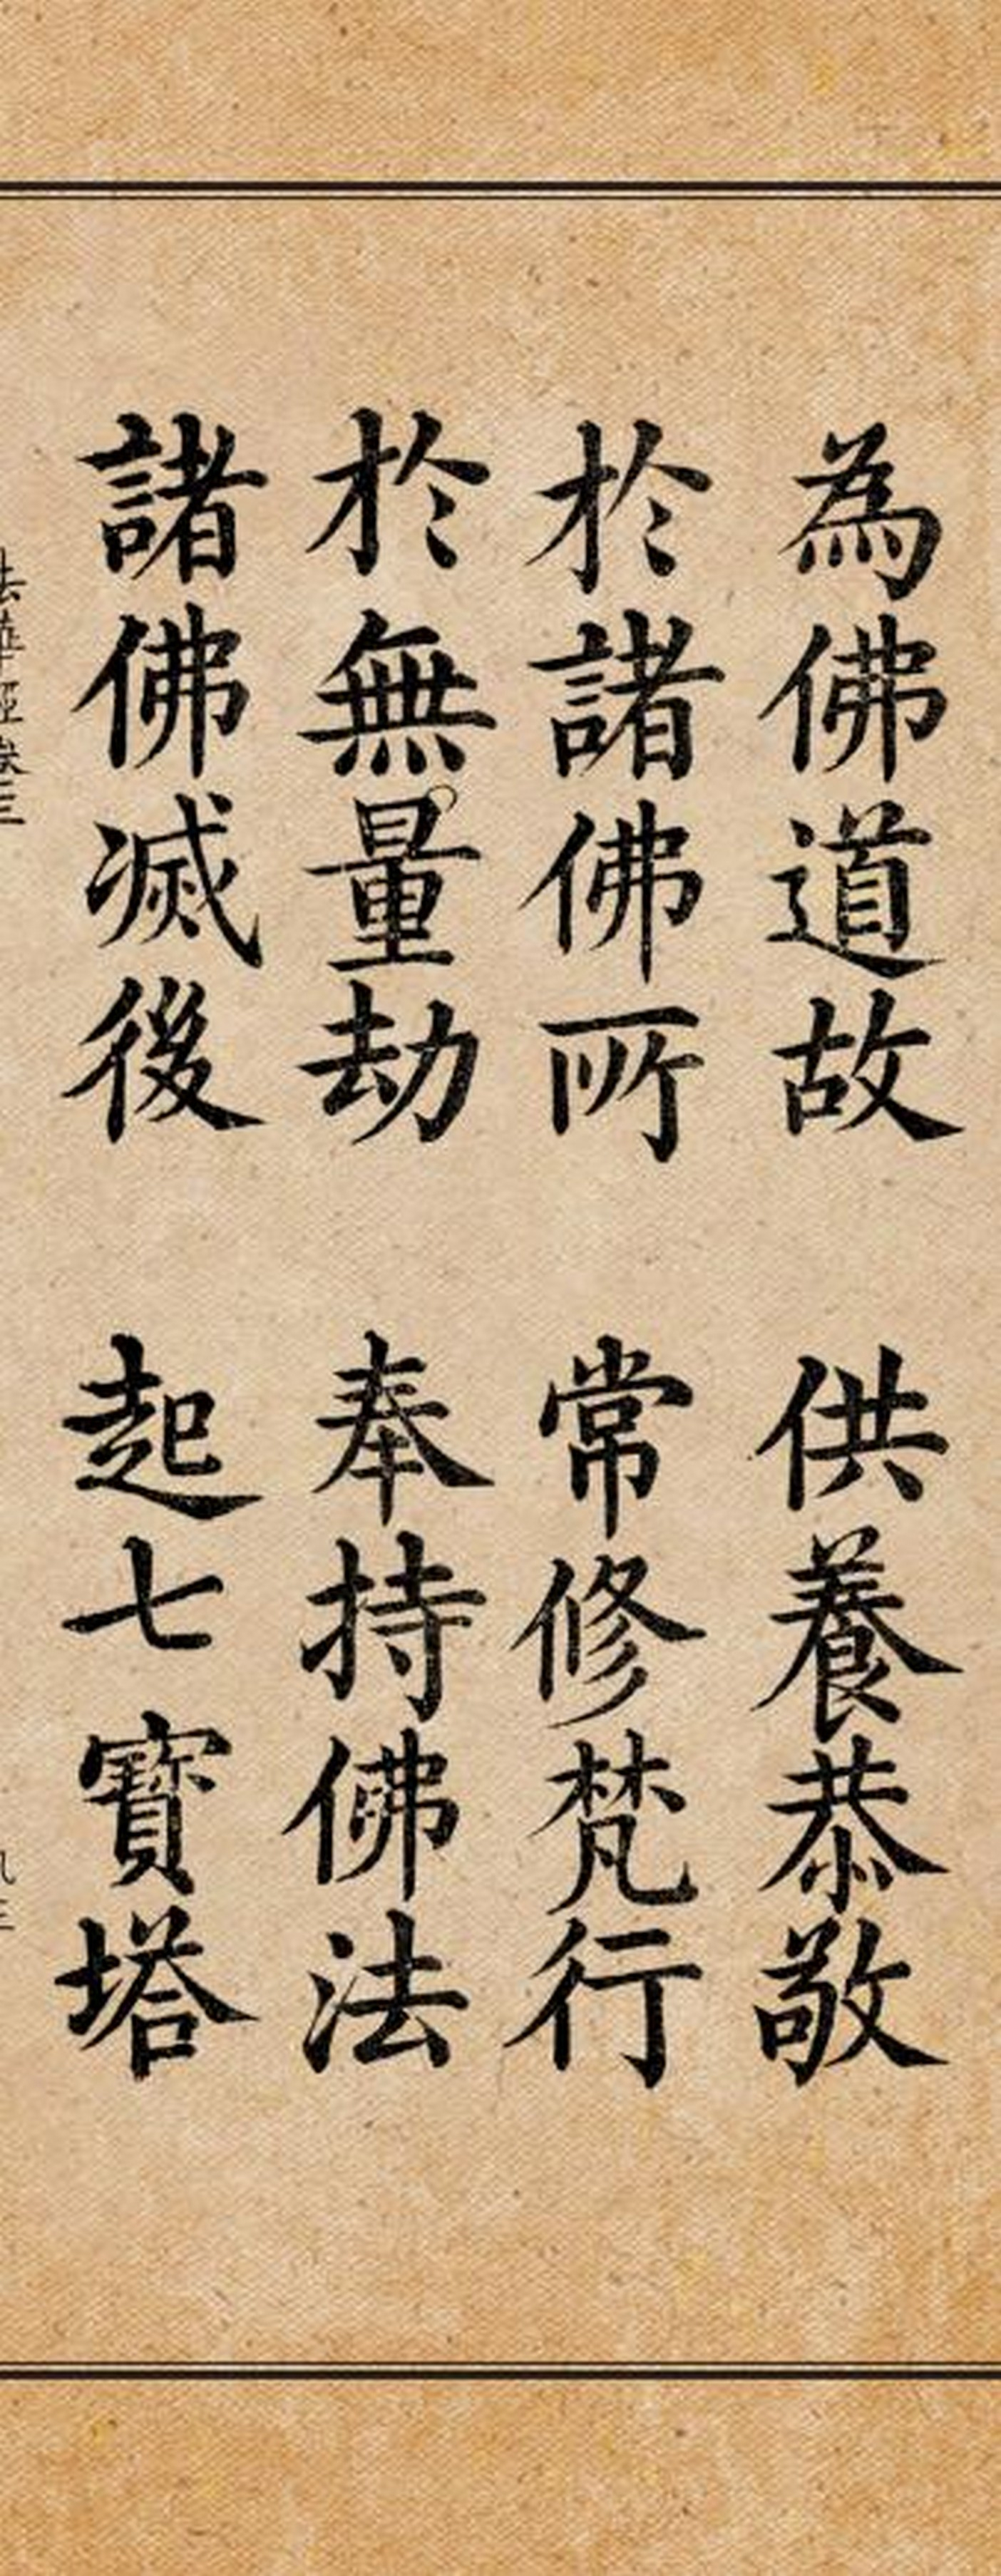 為佛道故 供養恭敬
於諸佛所 常修梵行
於無量劫 奉持佛法
諸佛滅後 起七寶塔
法華經卷三
九三